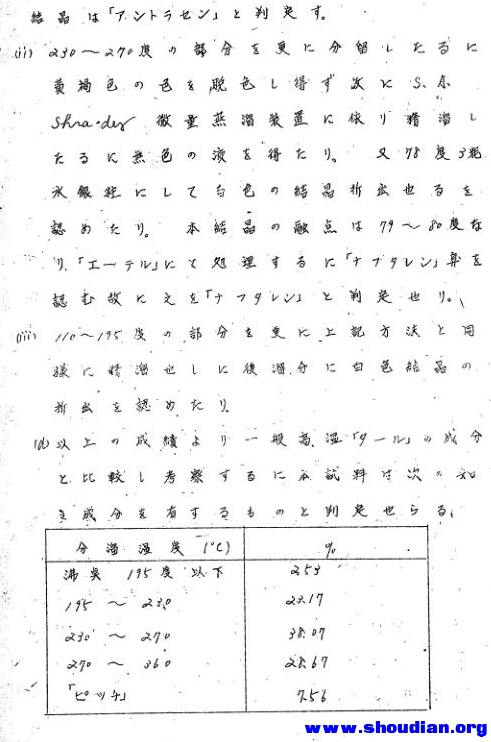 結晶は「アントラセン」と判定す。
(ii) 230～270度の部分を更に分留したるに
黄褐色の色を脱色し得ず次に S. A.
Shrader 微量蒸溜装置に依り精溜し
たるに無色の液を得たり。又78度3粍
水銀柱にして白色の結晶析出せるを
認めたり。本結晶の融点は79～80度な
り、「エーテル」にて処理するに「ナフタレン」臭を
認む故に之を「ナフタレン」と判定せり。
(iii) 110～195度の部分を更に上記方法と同
様に精溜せしに後溜分に白色結晶の
析出を認めたり。
(d) 以上の成績より一般高温「タール」の成分
と比較し考察するに本試料は次の如
き成分を有するものと判定せらる、
分溜温度 (°C) %
沸点 195度以下 2.53
195～230 23.17
230～270 38.07
270～360 28.67
「ピッチ」 7.56
www.shoudian.org